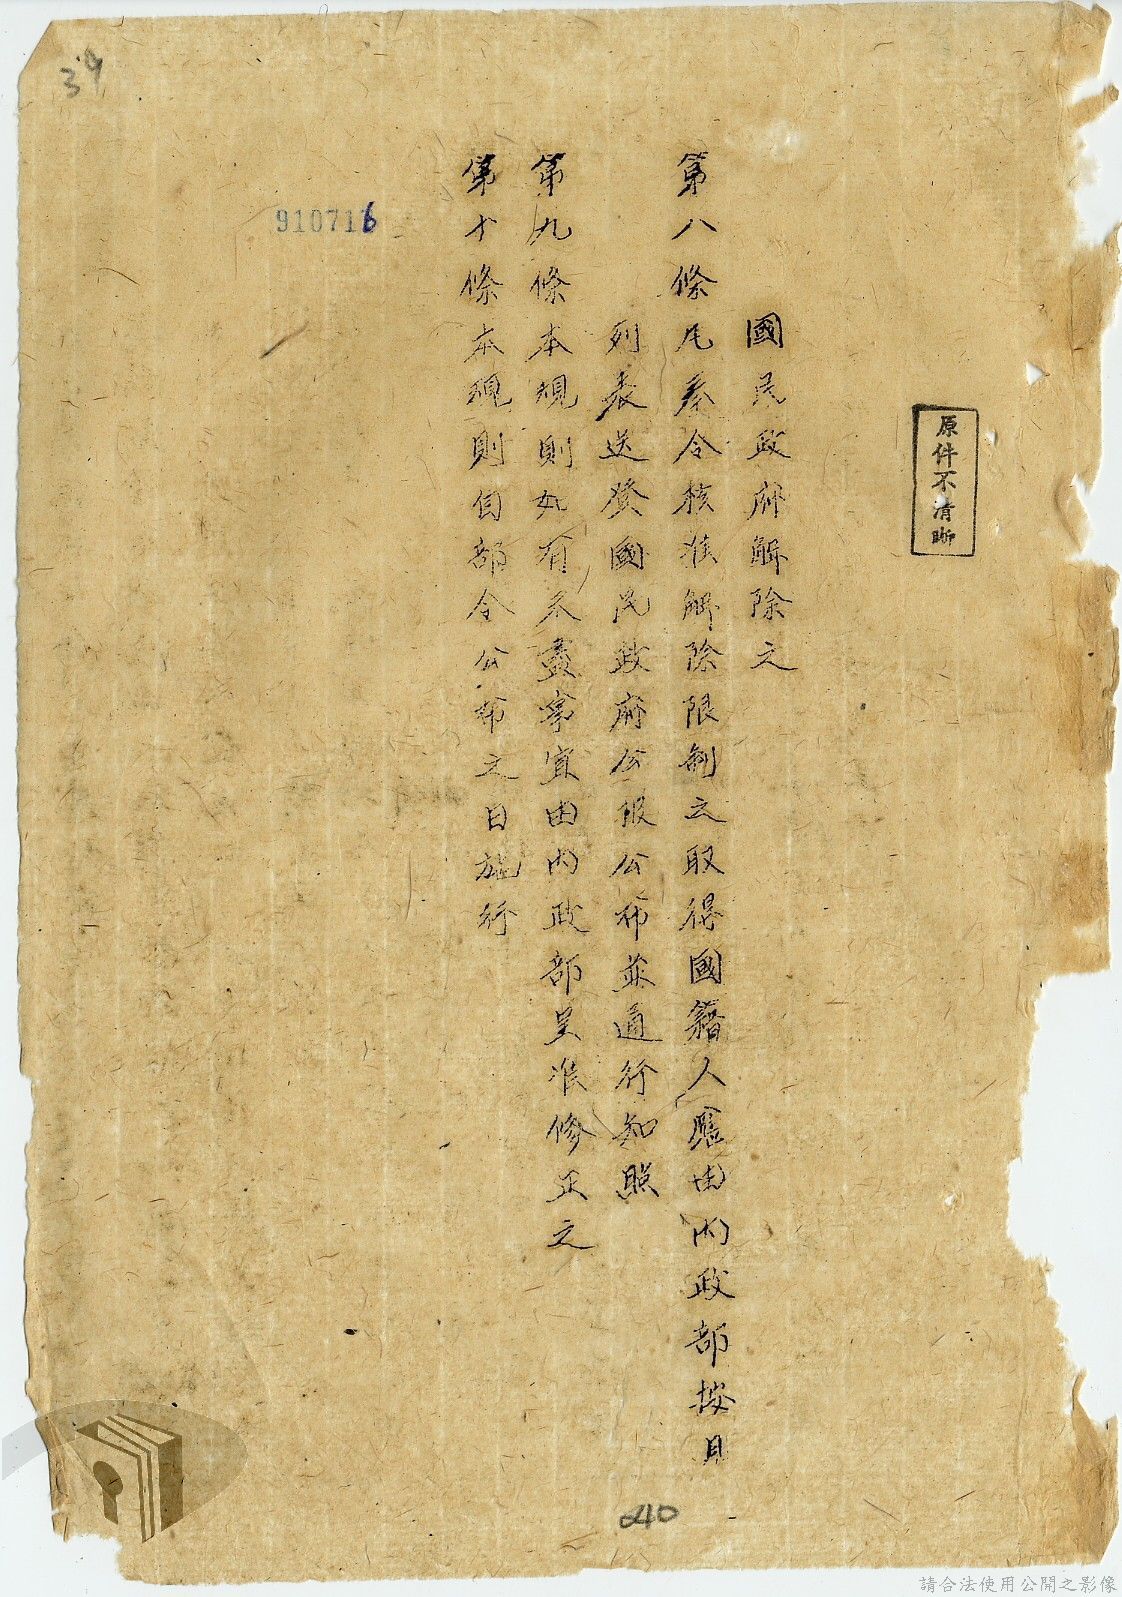 39
原件不清晰
國民政府解除之
第八條凡奉令核准解除限制之取得國籍人應由內政部按月
列表送登國民政府公報公布並通行知照
第九條本規則如有未盡事宜由內政部呈准修正之
第十條本規則自部令公布之日施行
910716
40
請合法使用公開之影像